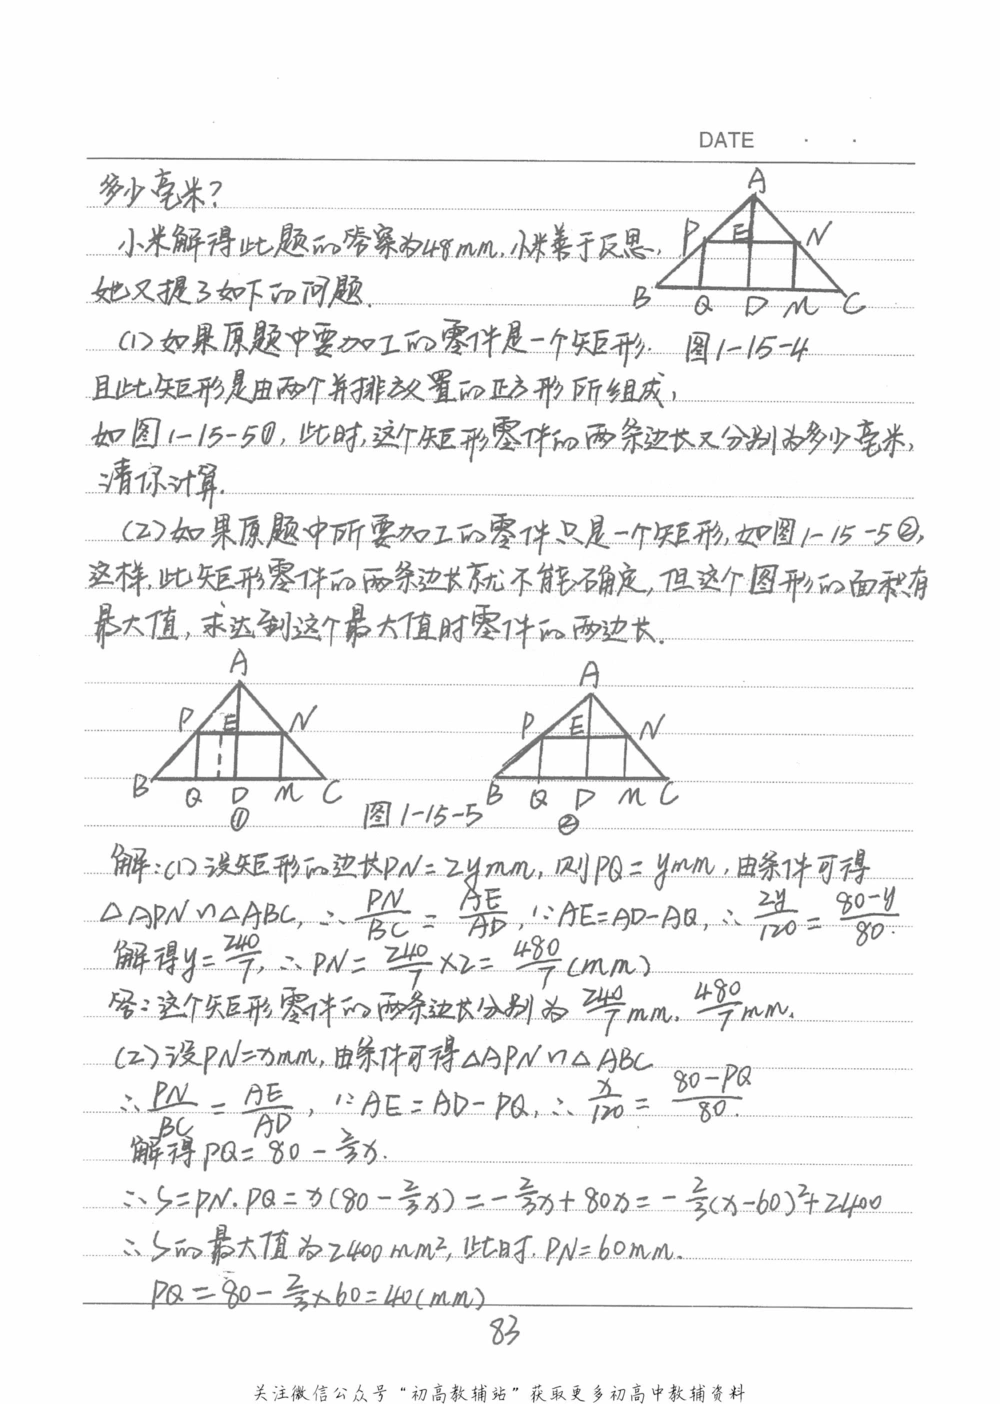 DATE · ·
多少毫米?
小米解得此题的答案为48mm,小米善于反思,
她又提了如下的问题.
A
P E N
B Q D M C
(1)如果原题中要加工的零件是一个矩形. 图1-15-4
且此矩形是由两个并排放置的正方形所组成,
如图1-15-5①,此时,这个矩形零件的两条边长又分别为多少毫米,
请你计算.
(2)如果原题中所要加工的零件只是一个矩形,如图1-15-5②,
这样,此矩形零件的两条边长就不能确定,但这个图形的面积有
最大值,求达到这个最大值时零件的两边长.
A A
P E N P E N
B Q D M C B Q D M C
① 图1-15-5 ②
解:(1)设矩形的边长PN=2ymm,则PQ=ymm,由条件可得
△APN∽△ABC,∴PN/BC=AE/AD,∵AE=AD-AQ,∴2y/120=80-y/80.
解得y=240/7,∴PN=240/7×2=480/7(mm)
答:这个矩形零件的两条边长分别为240/7mm.480/7mm.
(2)设PN=xmm,由条件可得△APN∽△ABC
∴PN/BC=AE/AD,∵AE=AD-PQ,∴x/120=80-PQ/80.
解得PQ=80-2/3x.
∴S=PN.PQ=x(80-2/3x)=-2/3x+80x=-2/3(x-60)²+2400
∴S的最大值为2400mm²,此时.PN=60mm.
PQ=80-2/3×60=40(mm)
83
关注微信公众号“初高教辅站”获取更多初高中教辅资料